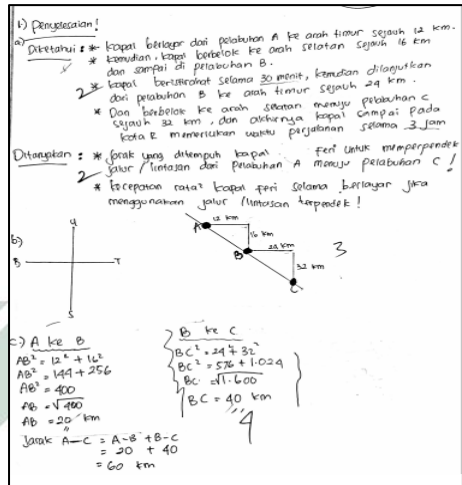 1.) Penyelesaian!
a) Diketahui : * kapal berlayar dari pelabuhan A ke arah timur sejauh 12 km.
* kemudian, kapal berbelok ke arah selatan sejauh 16 km
dan sampai di pelabuhan B.
2 * kapal beristirahat selama 30 menit, kemudian dilanjutkan
dari pelabuhan B ke arah timur sejauh 24 km.
* Dan berbelok ke arah selatan menuju pelabuhan C
sejauh 32 km, dan akhirnya kapal sampai pada
kota R memerlukan waktu perjalanan selama 3 jam
Ditanyakan : * Jarak yang ditempuh kapal feri untuk memperpendek
2 jalur /lintasan dari pelabuhan A menuju pelabuhan C !
* kecepatan rata² kapal feri selama berlayar jika
menggunakan jalur /lintasan terpendek !
b)
U
B T
S
A 12 km
16 km
B 24 km
32 km
C
3
c.) A ke B
AB² = 12² + 16²
AB² = 144 + 256
AB² = 400
AB = √400
AB = 20 km
B ke C
BC² = 24² + 32²
BC² = 576 + 1.024
BC = √1.600
BC = 40 km
4
Jarak A-C = A-B + B-C
= 20 + 40
= 60 km